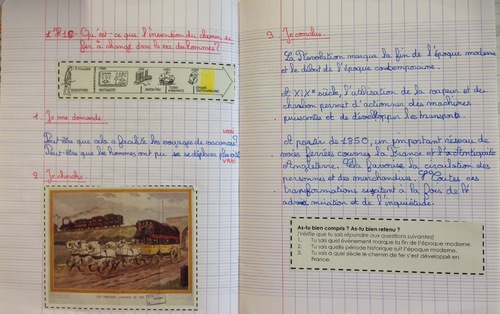 1. H18 Qu'est-ce que l'invention du chemin de
fer a changé dans la vie des hommes?
PRÉHISTOIRE
ANTIQUITÉ
MOYEN ÂGE
TEMPS MODERNES
ÉPOQUE CONTEMPORAINE
1. Je me demande
VRAI
Peut-être que cela a facilité les voyages de vacances?
Peut-être que les hommes ont pu se déplacer plus
VRAI
2. Je cherche
3. Je conclus.
La Révolution marque la fin de l'époque moderne
et le début de l'époque contemporaine.
Au XIXe siècle l'utilisation de la vapeur et du
charbon permet d'actionner des machines
puissantes et de développer les transports.
A partir de 1850, un important réseau de
voies ferrées couvre la France et
Angleterre. Cela favorise la circulation des
personnes et des marchandises. Toutes ces
transformations suscitent à la fois de l'
admiration et de l'inquiétude.
As-tu bien compris ? As-tu bien retenu ?
(Vérifie que tu sais répondre aux questions suivantes)
1. Tu sais quel évènement marque la fin de l'époque moderne.
2. Tu sais quelle période historique suit l'époque moderne.
3. Tu sais à quel siècle le chemin de fer s'est développé en
France.